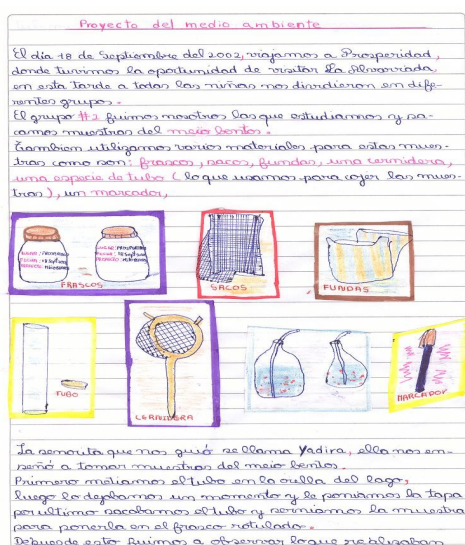 Proyecto del medio ambiente
El día 18 de Septiembre del 2002, viajamos a Prosperidad,
donde tuvimos la oportunidad de visitar La Alvarrada,
en esta tarde a todas las niñas nos dividieron en dife-
rentes grupos.
El grupo #2 fuimos nosotros las que estudiamos y sa-
camos muestras del meio bentos.
Tambien utilizamos varios materiales para estas mues-
tras como son: frascos, sacos, fundas, una cernidera,
una especie de tubo (lo que usamos para cojer las mues-
tras), un marcador,
FRASCOS
SACOS
FUNDAS
TUBO
CERNIDERA
MARCADOR
La señorita que nos guió se llama Yadira, ella nos en-
señó a tomar muestras del meio bentos.
Primero metiamos el tubo en la orilla del lago,
luego lo dejabamos un momento y le poniamos la tapa
por ultimo sacabamos el tubo y serniamos la muestra
para ponerla en el frasco rotulado.
Depues de esto fuimos a observar lo que realizaban